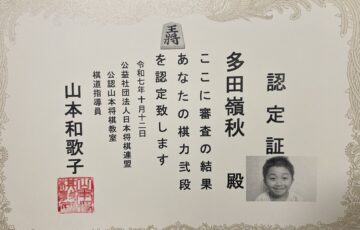 認定証
多田嶺秋 殿
ここに審査の結果
あなたの棋力弐段
を認定致します
令和七年十月十二日
公益社団法人日本将棋連盟
公認山本将棋教室
棋道指導員
山本和歌子
王将